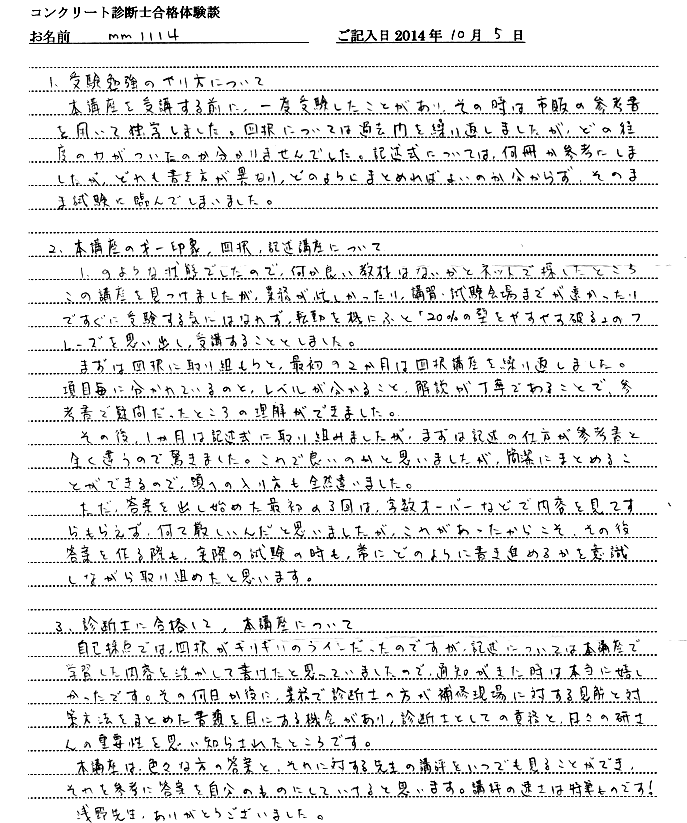 コンクリート診断士合格体験談
お名前 mm1114 ご記入日 2014年 10月 5日
1. 受験勉強のやり方について
本講座を受講する前に、一度受験したことがあり、その時は市販の参考書
を用いて独学しました。四択については過去問を繰り返しましたが、どの程
度の力がついたのか分かりませんでした。記述式については、何冊か参考にしま
したが、どれも書き方が異なり、どのようにまとめればよいのか分からず、そのま
ま試験に臨んでしまいました。
2. 本講座の第一印象、四択、記述講座について
1.のような状態でしたので、何か良い教材はないかとネットで探したところ
この講座を見つけましたが、業務が忙しかったり、講習・試験会場までが遠かったり
ですぐに受験する気にはなれず、転勤を機にふと「20%の壁をやすやす破る」のフ
レーズを思い出し、受講することとしました。
まずは四択に取り組もうと、最初の2か月は四択講座を繰り返しました。
項目毎に分かれているのと、レベルが分かること、解説が丁寧であることで、参
考書で疑問だったところの理解ができました。
その後、1か月は記述式に取り組みましたが、まずは記述の仕方が参考書と
全く違うので驚きました。これで良いのかと思いましたが、簡潔にまとめるこ
とができるので、頭への入り方も全然違いました。
ただ、答案を出し始めた最初の3回は、字数オーバーなどで内容を見てす
らもらえず、何て厳しいんだと思いましたが、これがあったからこそ、その後
答案を作る際も、実際の試験の時も、常にどのように書き進めるかを意識
しながら取り組めたと思います。
3. 診断士に合格して、本講座について
自己採点では、四択がぎりぎりのラインだったのですが、記述については本講座で
学習した内容を活かして書けたと思っていましたので、通知がきた時は本当に嬉し
かったです。その何日か後に、業務で診断士の方が補修現場に対する見解と対
策方法をまとめた書類を目にする機会があり、診断士としての責務と、日々の研さ
んの重要性を思い知らされたところです。
本講座は、色々な方の答案と、それに対する先生の講評をいつでも見ることができ、
それを参考に答案を自分のものにしていけると思います。講評の速さは特筆ものです!
浅野先生、ありがとうございました。